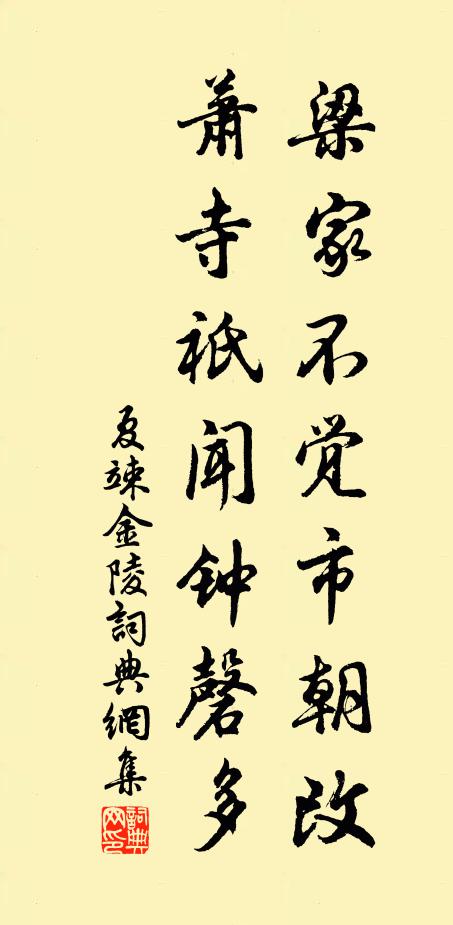 梁家不觉市朝改
萧寺祇闻钟磬多
夏竦金陵詞典網集
詞典
网印